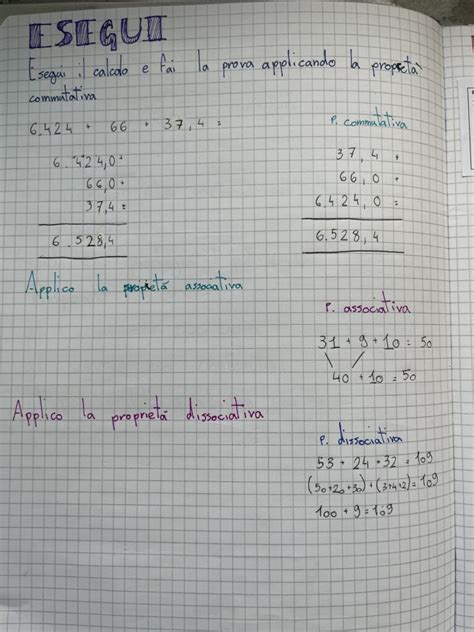 ESEGUI
Esegui il calcolo e fai la prova applicando la proprietà
commutativa
6.424 + 66 + 37,4 =
6.424,0+
66,0+
37,4=
6.528,4
P. commutativa
37,4+
66,0+
6.424,0=
6.528,4
Applico la proprietà associativa
P. associativa
31 + 9 + 10 = 50
40 + 10 = 50
Applico la proprietà dissociativa
P. dissociativa
53 + 24 + 32 = 109
(50+20+30)+(3+4+2)=109
100 + 9 = 109